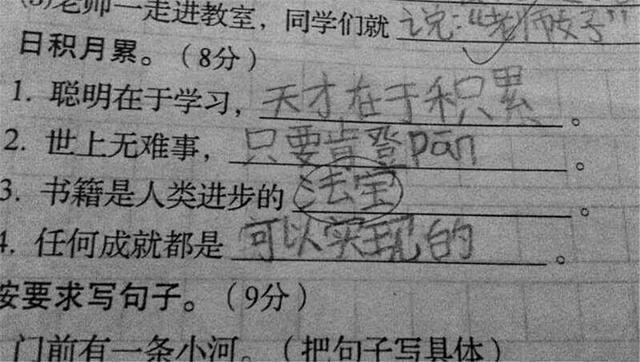 (3)老师一走进教室,同学们就说:“老师好”
日积月累。(8分)
1. 聪明在于学习,天才在于积累。
2. 世上无难事,只要肯登pān。
3. 书籍是人类进步的法宝。
4. 任何成就都是可以实现的。
按要求写句子。(9分)
门前有一条小河。(把句子写具体)